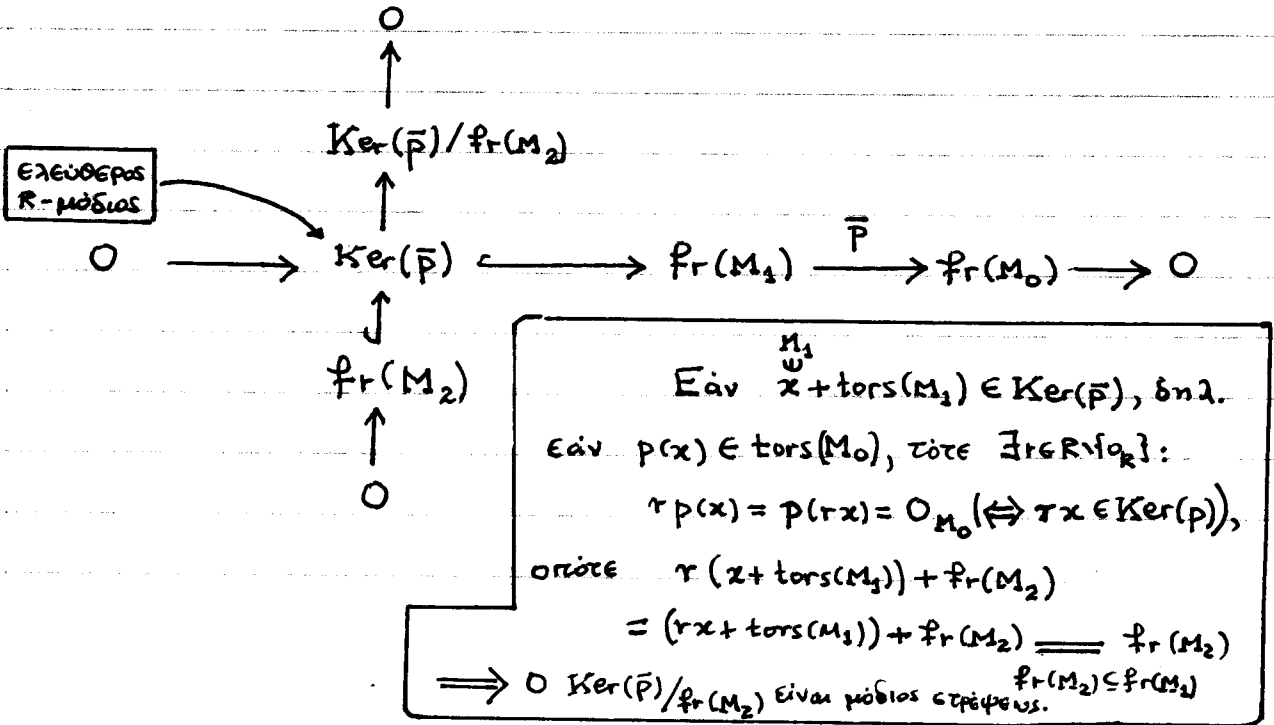 0
Ker(p̄)/fr(M₂)
ελεύθερος
R-μόδιος
0 → Ker(p̄) ↪ fr(M₁) —p̄→ fr(M₀) → 0
fr(M₂)
0
M₁
Εάν x + tors(M₁) ∈ Ker(p̄), δηλ.
εάν p(x) ∈ tors(M₀), τότε ∃r∈R∖{0_R}:
r p(x) = p(rx) = 0_M₀ (⇔ rx ∈ Ker(p)),
οπότε r (x + tors(M₁)) + fr(M₂)
= (rx + tors(M₁)) + fr(M₂) = fr(M₂)
fr(M₂) ⊆ fr(M₁)
⟹ Ο Ker(p̄)/fr(M₂) είναι μόδιος στρέψεως.